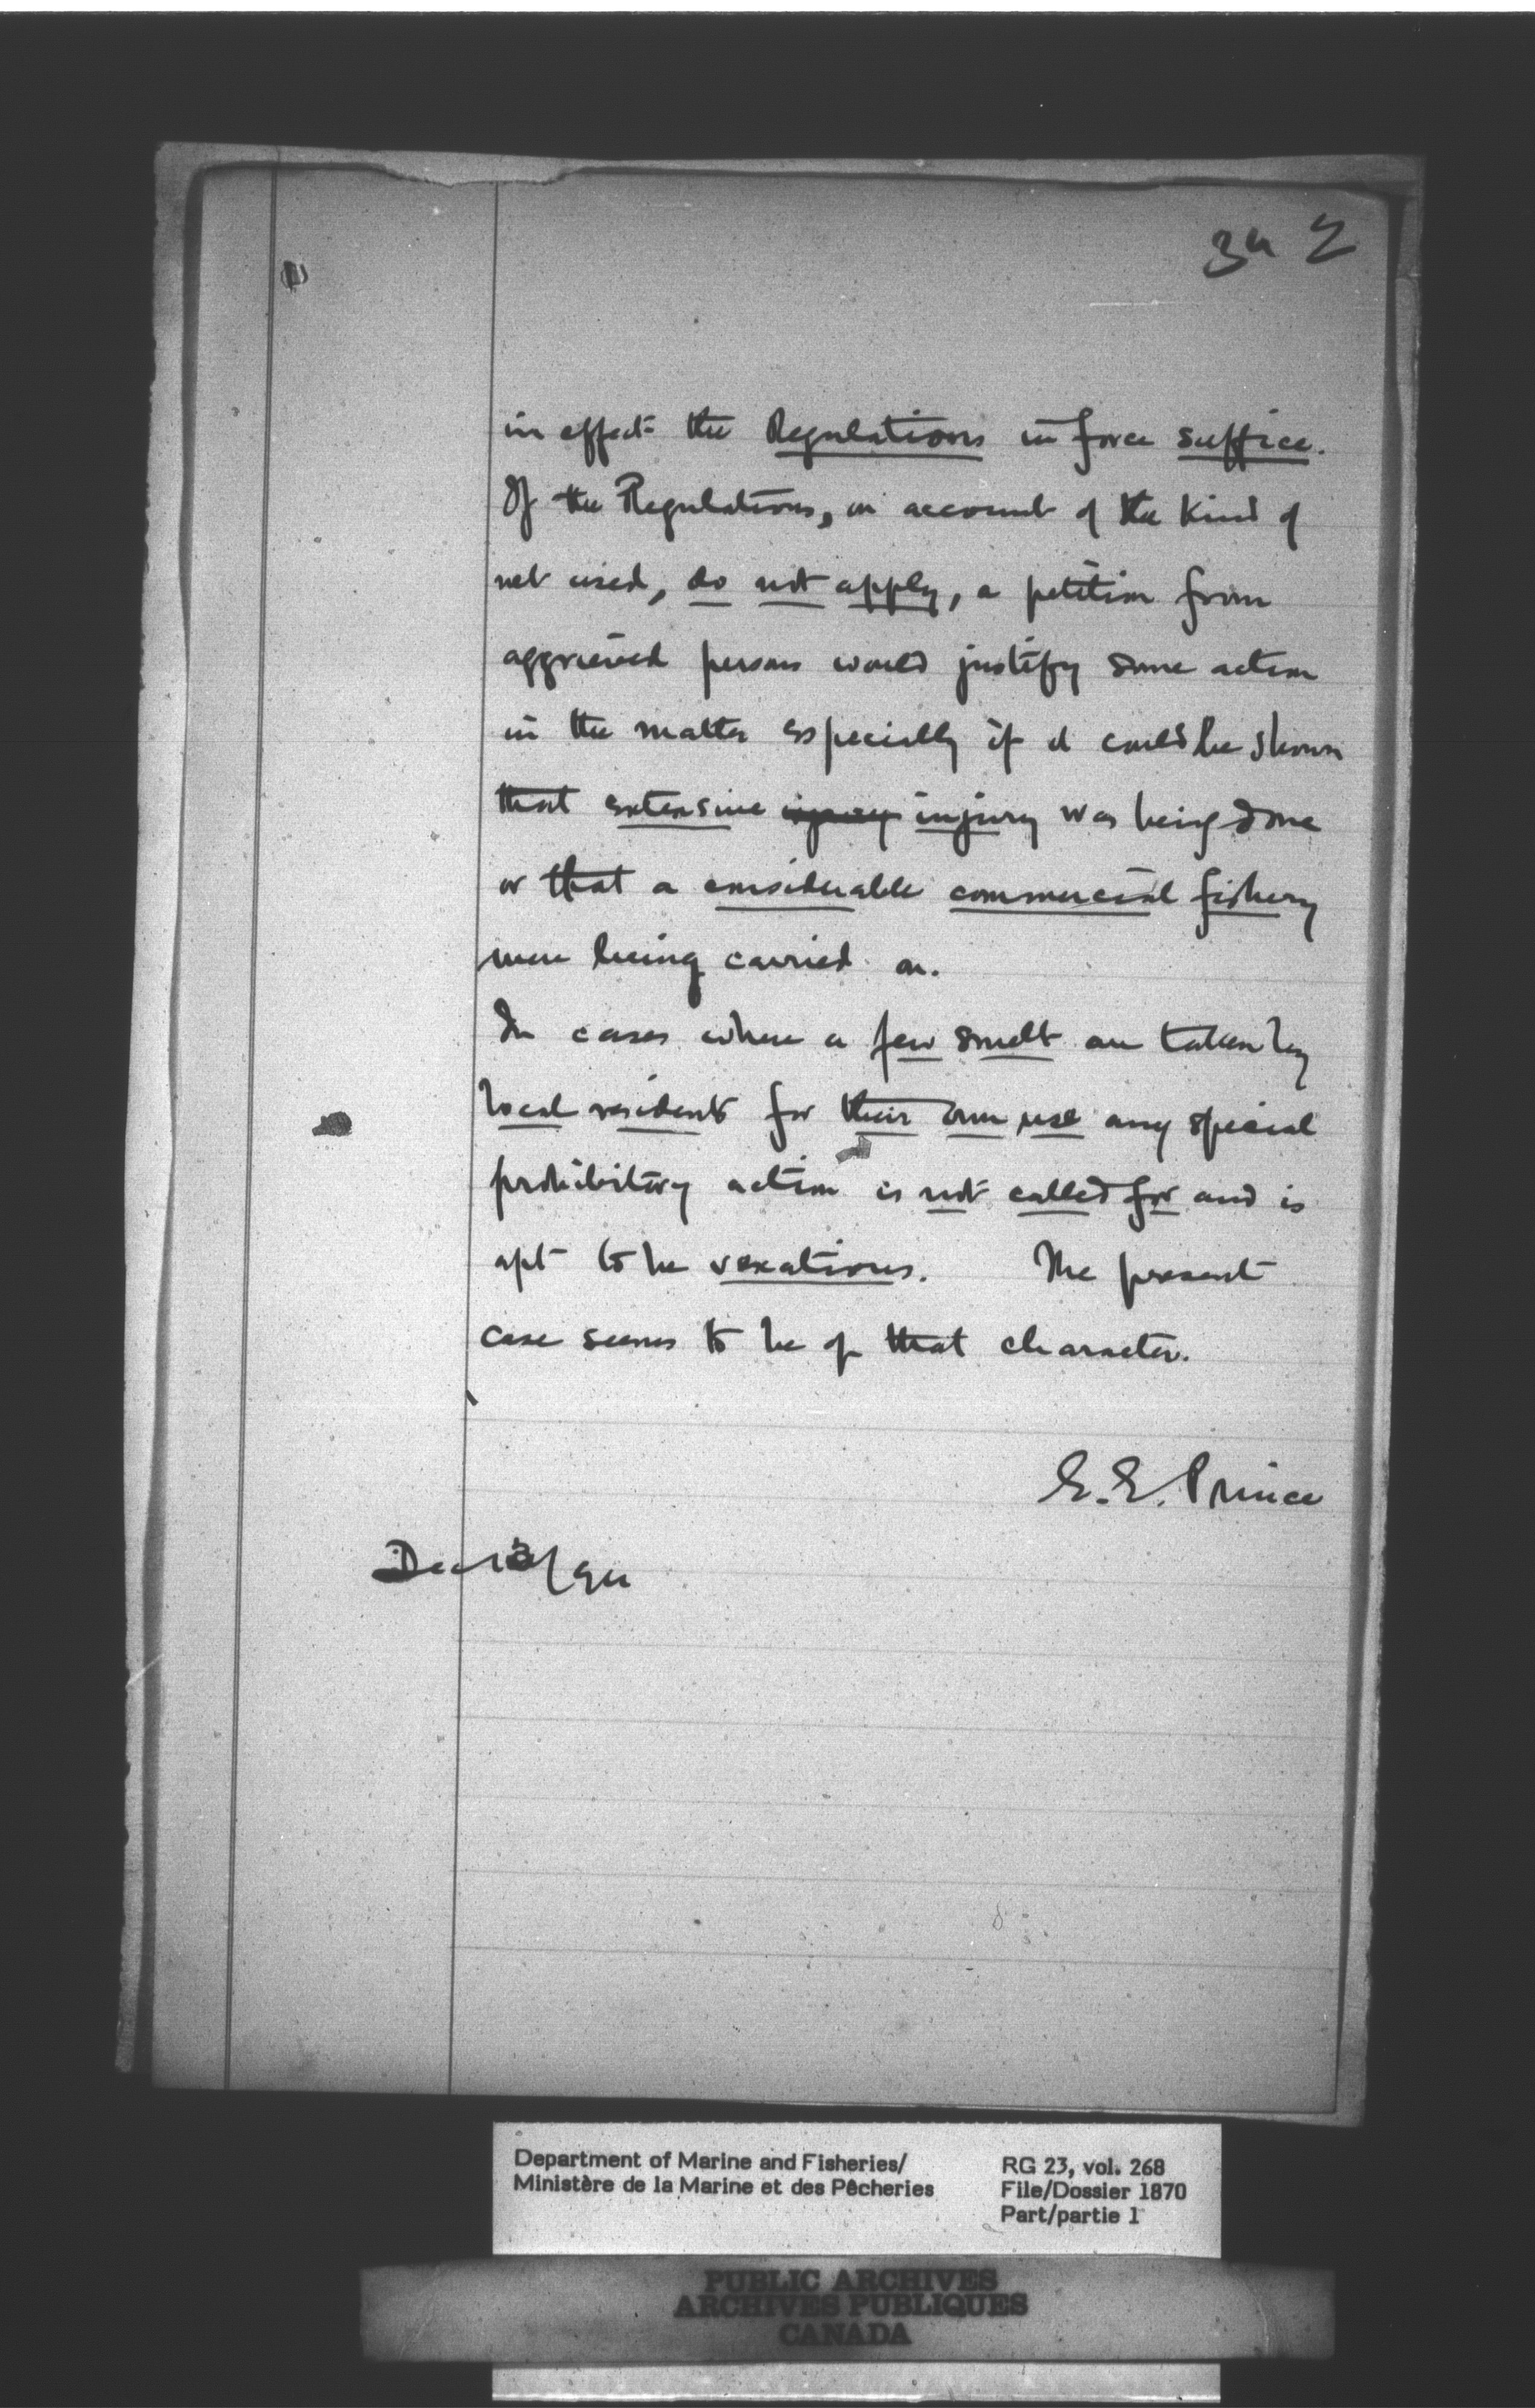 3a 2
in effect the Regulations in force suffice.
If the Regulations, on account of the kind of
net used, do not apply, a petition from
aggrieved persons would justify some action
in the matter especially if it could be shown
that extensive injury injury was being done
or that a considerable commercial fishery
were being carried on.
In cases where a few smelt are taken by
local residents for their own use any special
prohibitory action is not called for and is
apt to be vexatious. The present
case seems to be of that character.
E. E. Prince
Dec 13/94
Department of Marine and Fisheries/
Ministère de la Marine et des Pêcheries
RG 23, vol. 268
File/Dossier 1870
Part/partie 1
PUBLIC ARCHIVES
ARCHIVES PUBLIQUES
CANADA